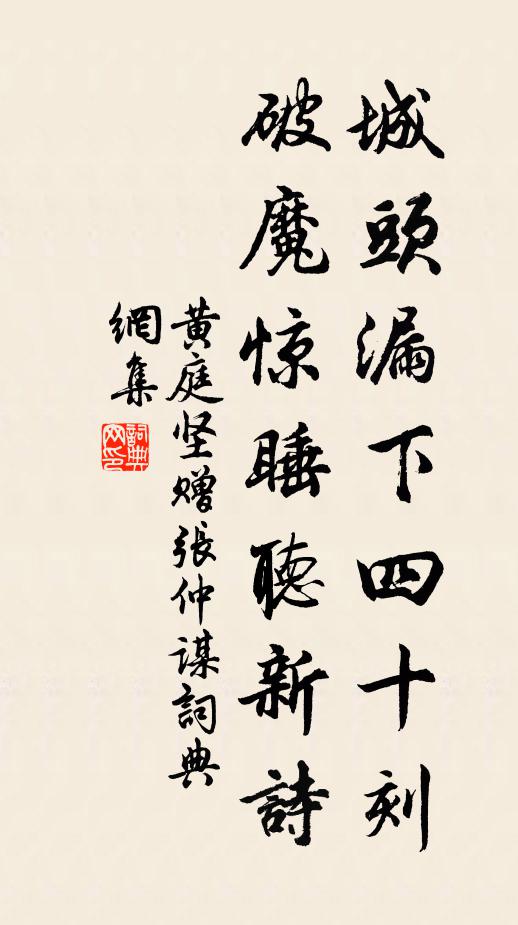 城頭漏下四十刻
破魔惊睡聽新詩
黄庭坚赠張仲谋詞典
網集
詞典
网印